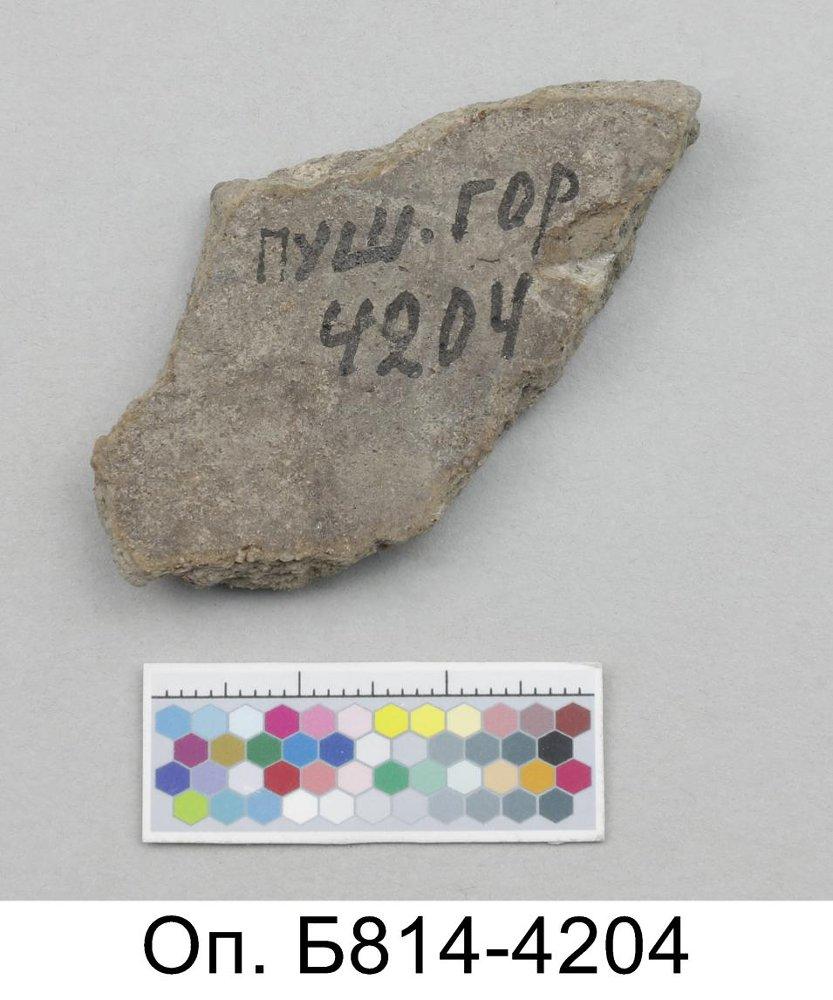 ПУШ. ГОР
4204
Оп. Б814-4204